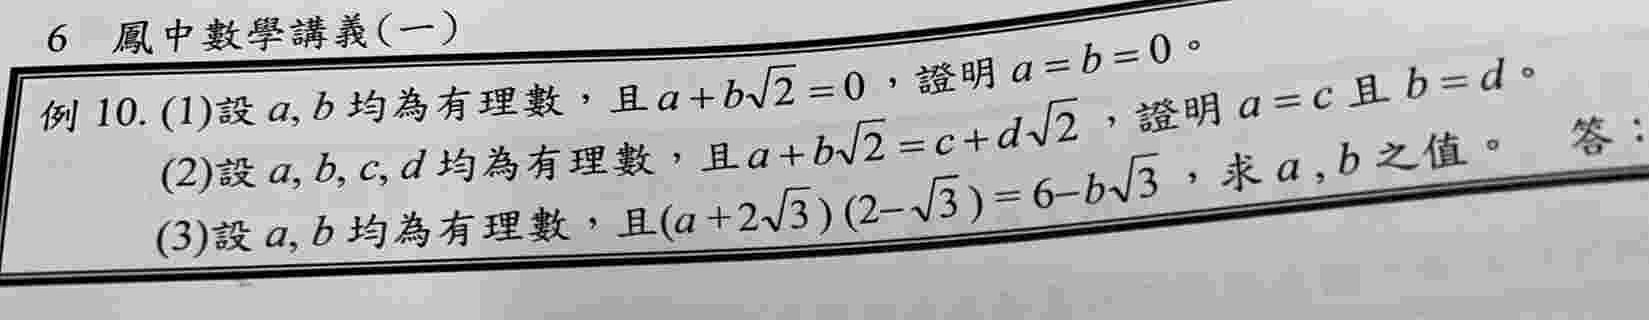 6 鳳中數學講義(一)
例 10. (1)設 a, b 均為有理數，且 a+b√2=0，證明 a=b=0。
(2)設 a, b, c, d 均為有理數，且 a+b√2=c+d√2，證明 a=c 且 b=d。
(3)設 a, b 均為有理數，且(a+2√3)(2-√3)=6-b√3，求 a, b 之值。 答：